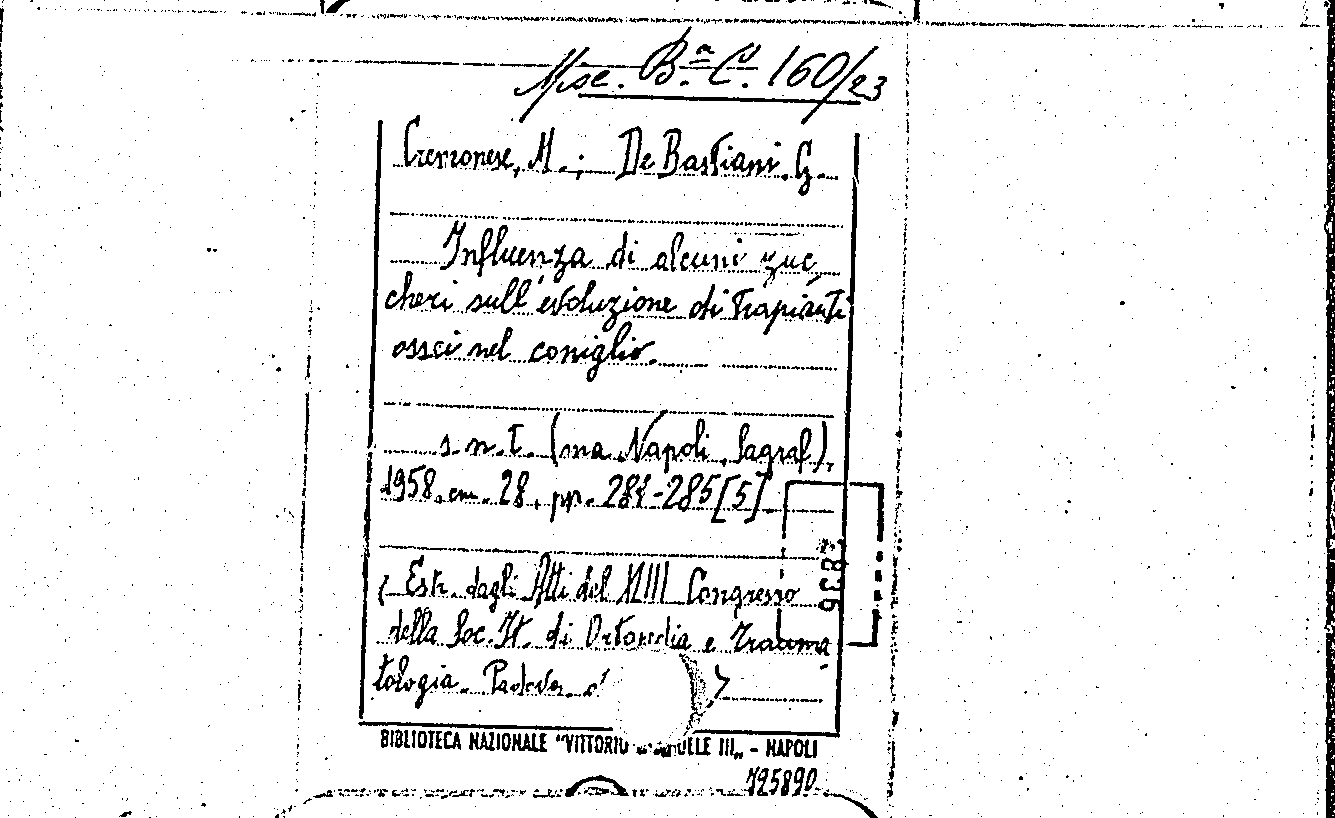 Misc. Bª C. 160/23
Cremonese, M. ; De Bastiani G.
Influenza di alcuni zuc
cheri sull'evoluzione di trapianti
ossei nel coniglio.
s. n. t. (ma Napoli, Sagraf),
1958. cm. 28, pp. 281-285 [5]
( Estr. dagli Atti del XLIII Congresso
della Soc. It. di Ortopedia e Trauma
tologia. Padova
BIBLIOTECA NAZIONALE "VITTORIO EMANUELE III„ - NAPOLI
795890